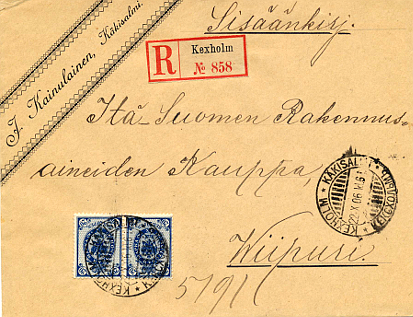 J. Kainulainen, Käkisalmi.
Sisäänkirj.
R
Kexholm
№ 858
Itä-Suomen Rakennus-
aineiden Kauppa,
Wiipuri.
KÄKISALMI
22.X.06
KEXHOLM